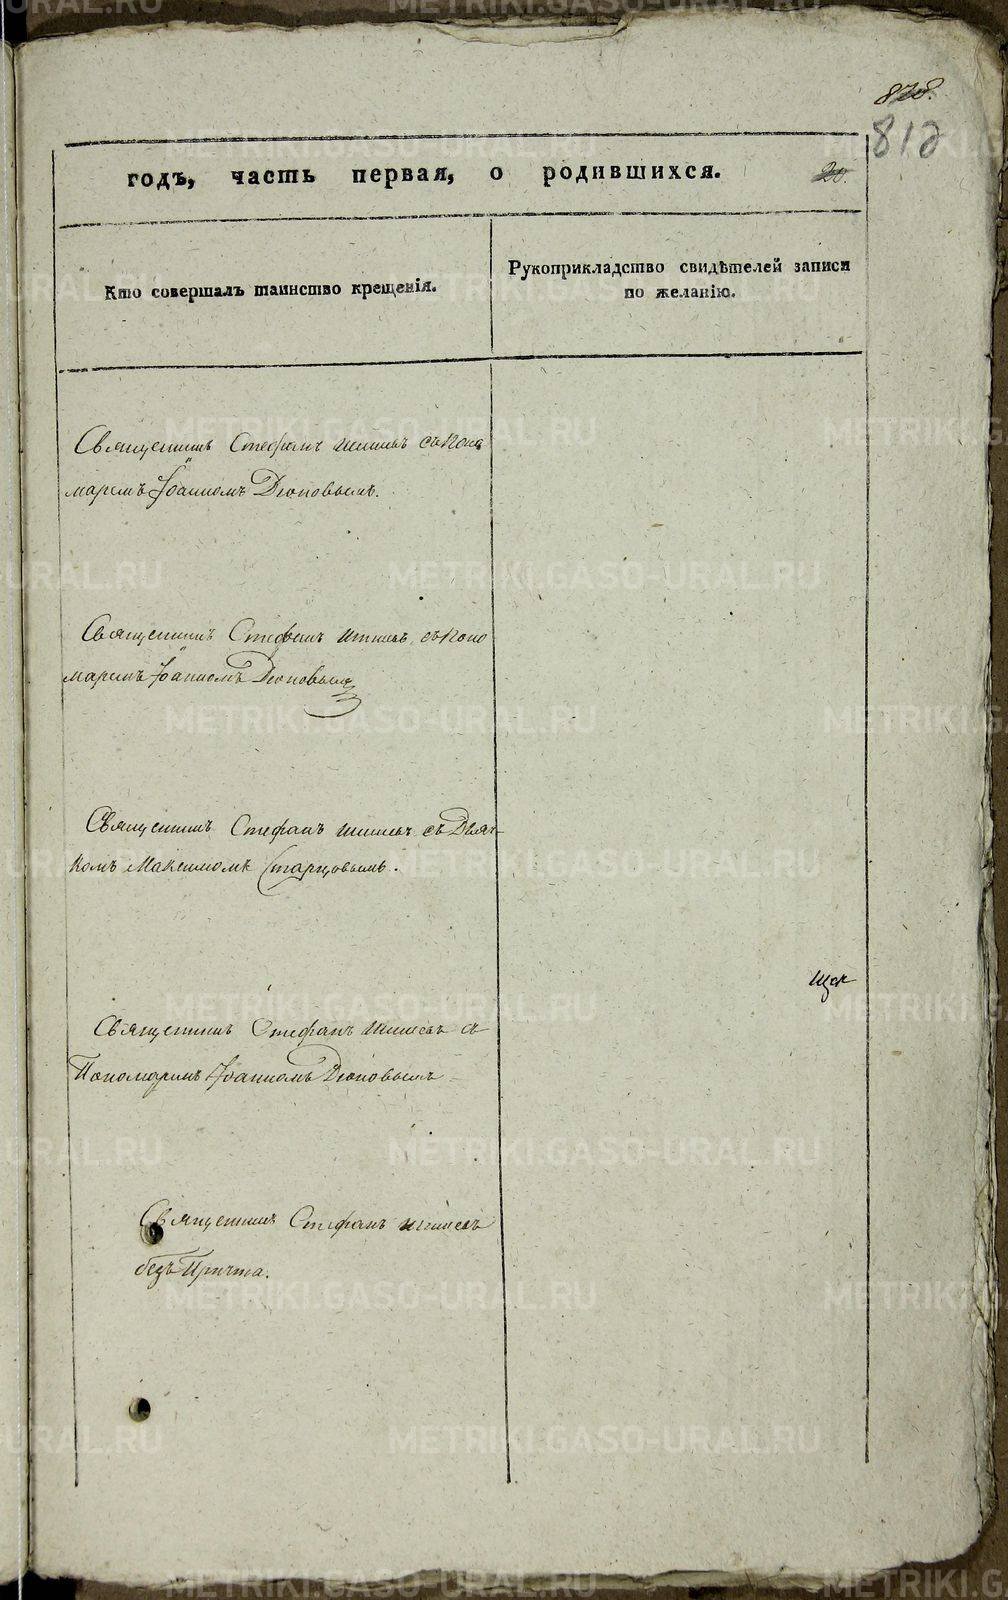 812
годъ, часть первая, о родившихся.
Кто совершалъ таинство крещенія.
Рукоприкладство свидѣтелей записи
по желанію.
Священникъ Стефанъ съ Поно
маремъ Іоанномъ Дюповымъ.
Священникъ Стефанъ съ Поно
маремъ Іоанномъ Дюповымъ
Священникъ Стефанъ съ Дьяч-
комъ Максимомъ Старцовымъ.
Священникъ Стефанъ съ
Пономаремъ Іоанномъ Дюповымъ
Священникъ Стефанъ
безъ Причта.
METRIKI.GASO-URAL.RU